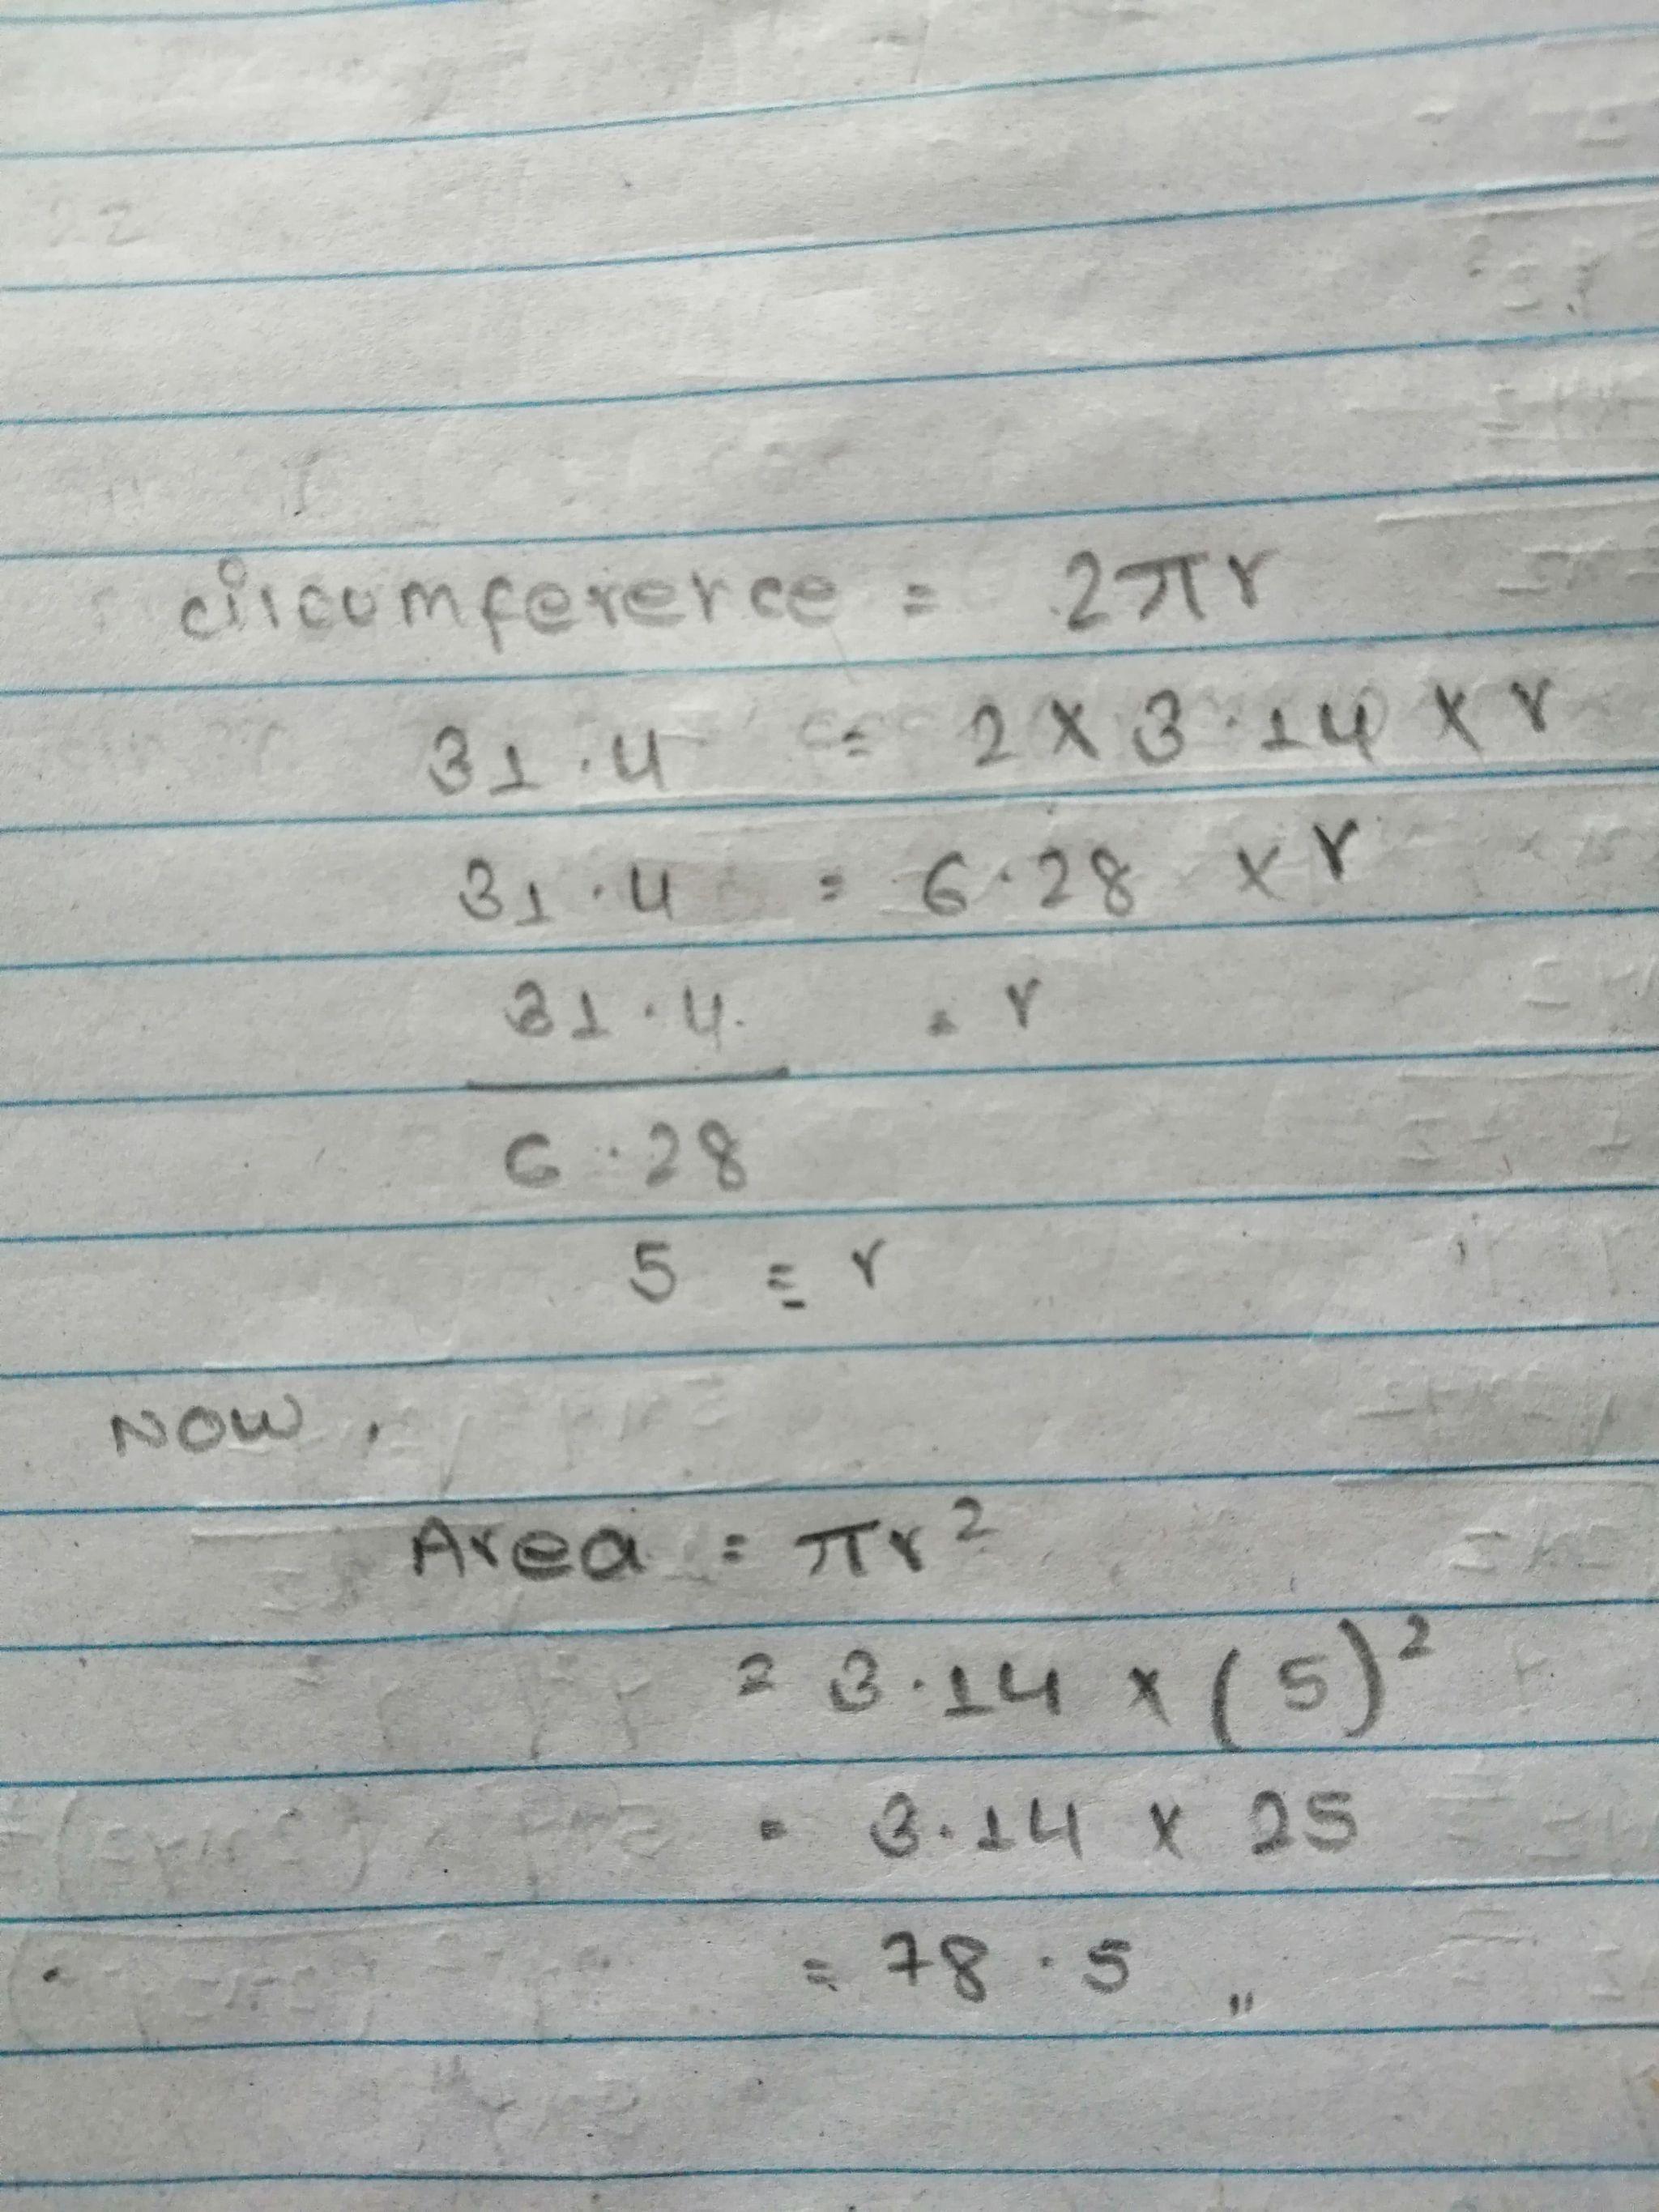 circumfererce = 2πr
31.4 = 2 x 3.14 x r
31.4 = 6.28 x r
31.4 = r
6.28
5 = r
Now,
Area = πr²
= 3.14 x (5)²
= 3.14 x 25
= 78.5 "